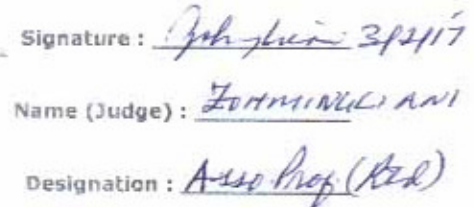 Signature : 3/2/17
Name (Judge) : ZOHMINGLIANI
Designation : Asso Prof (Rtd)